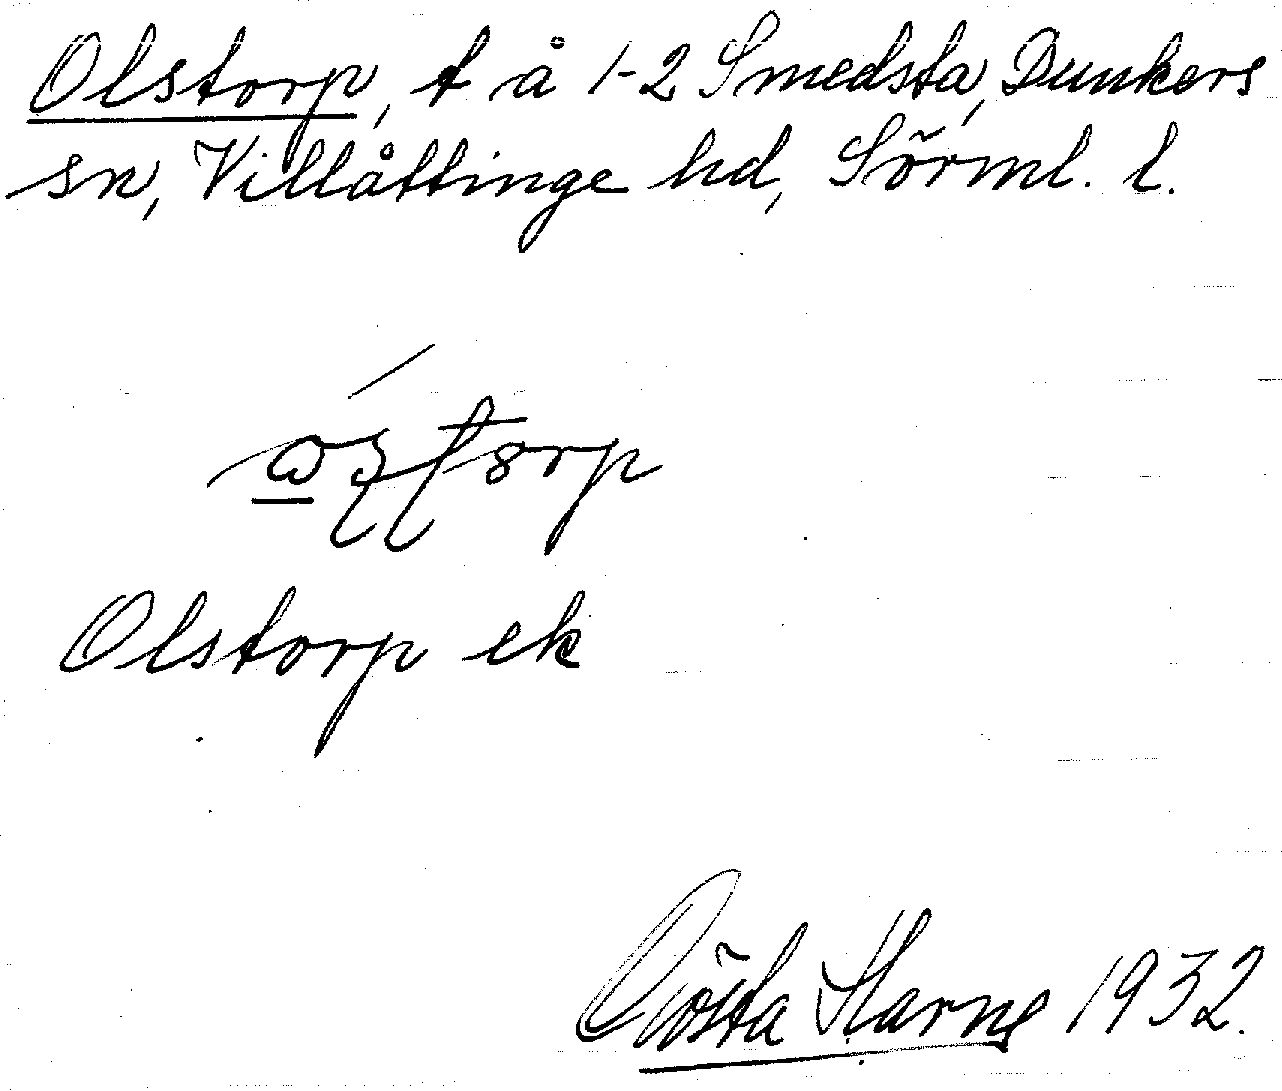 Olstorp, t å 1-2 Smedsta, Dunkers
sn, Villåttinge hd, Sörml. l.
Olstorp ek
Gösta Harne 1932.